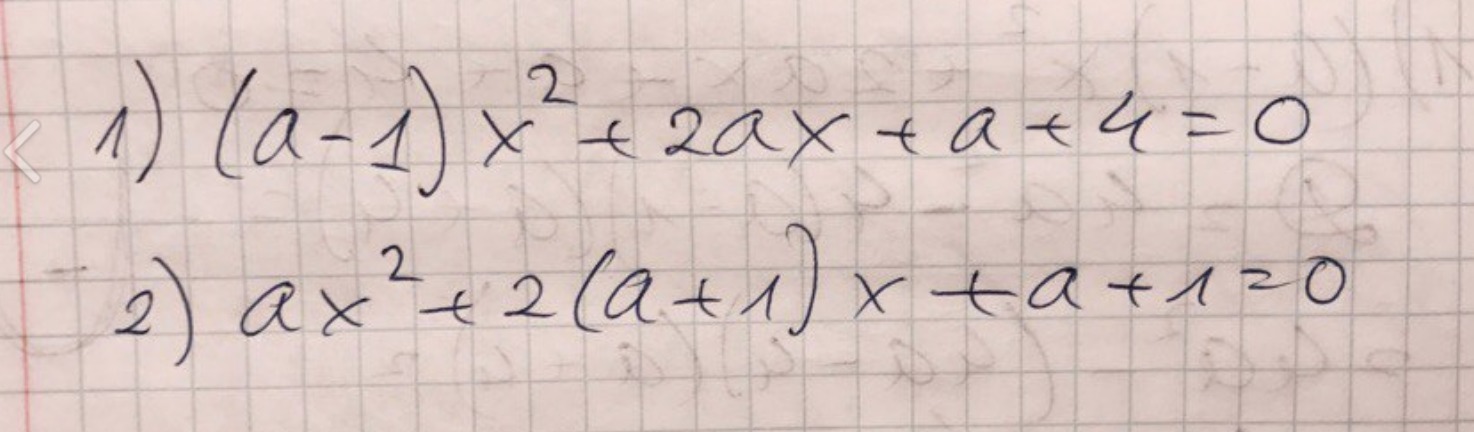 1) (a-1)x²+2ax+a+4=0
2) ax²+2(a+1)x+a+1=0